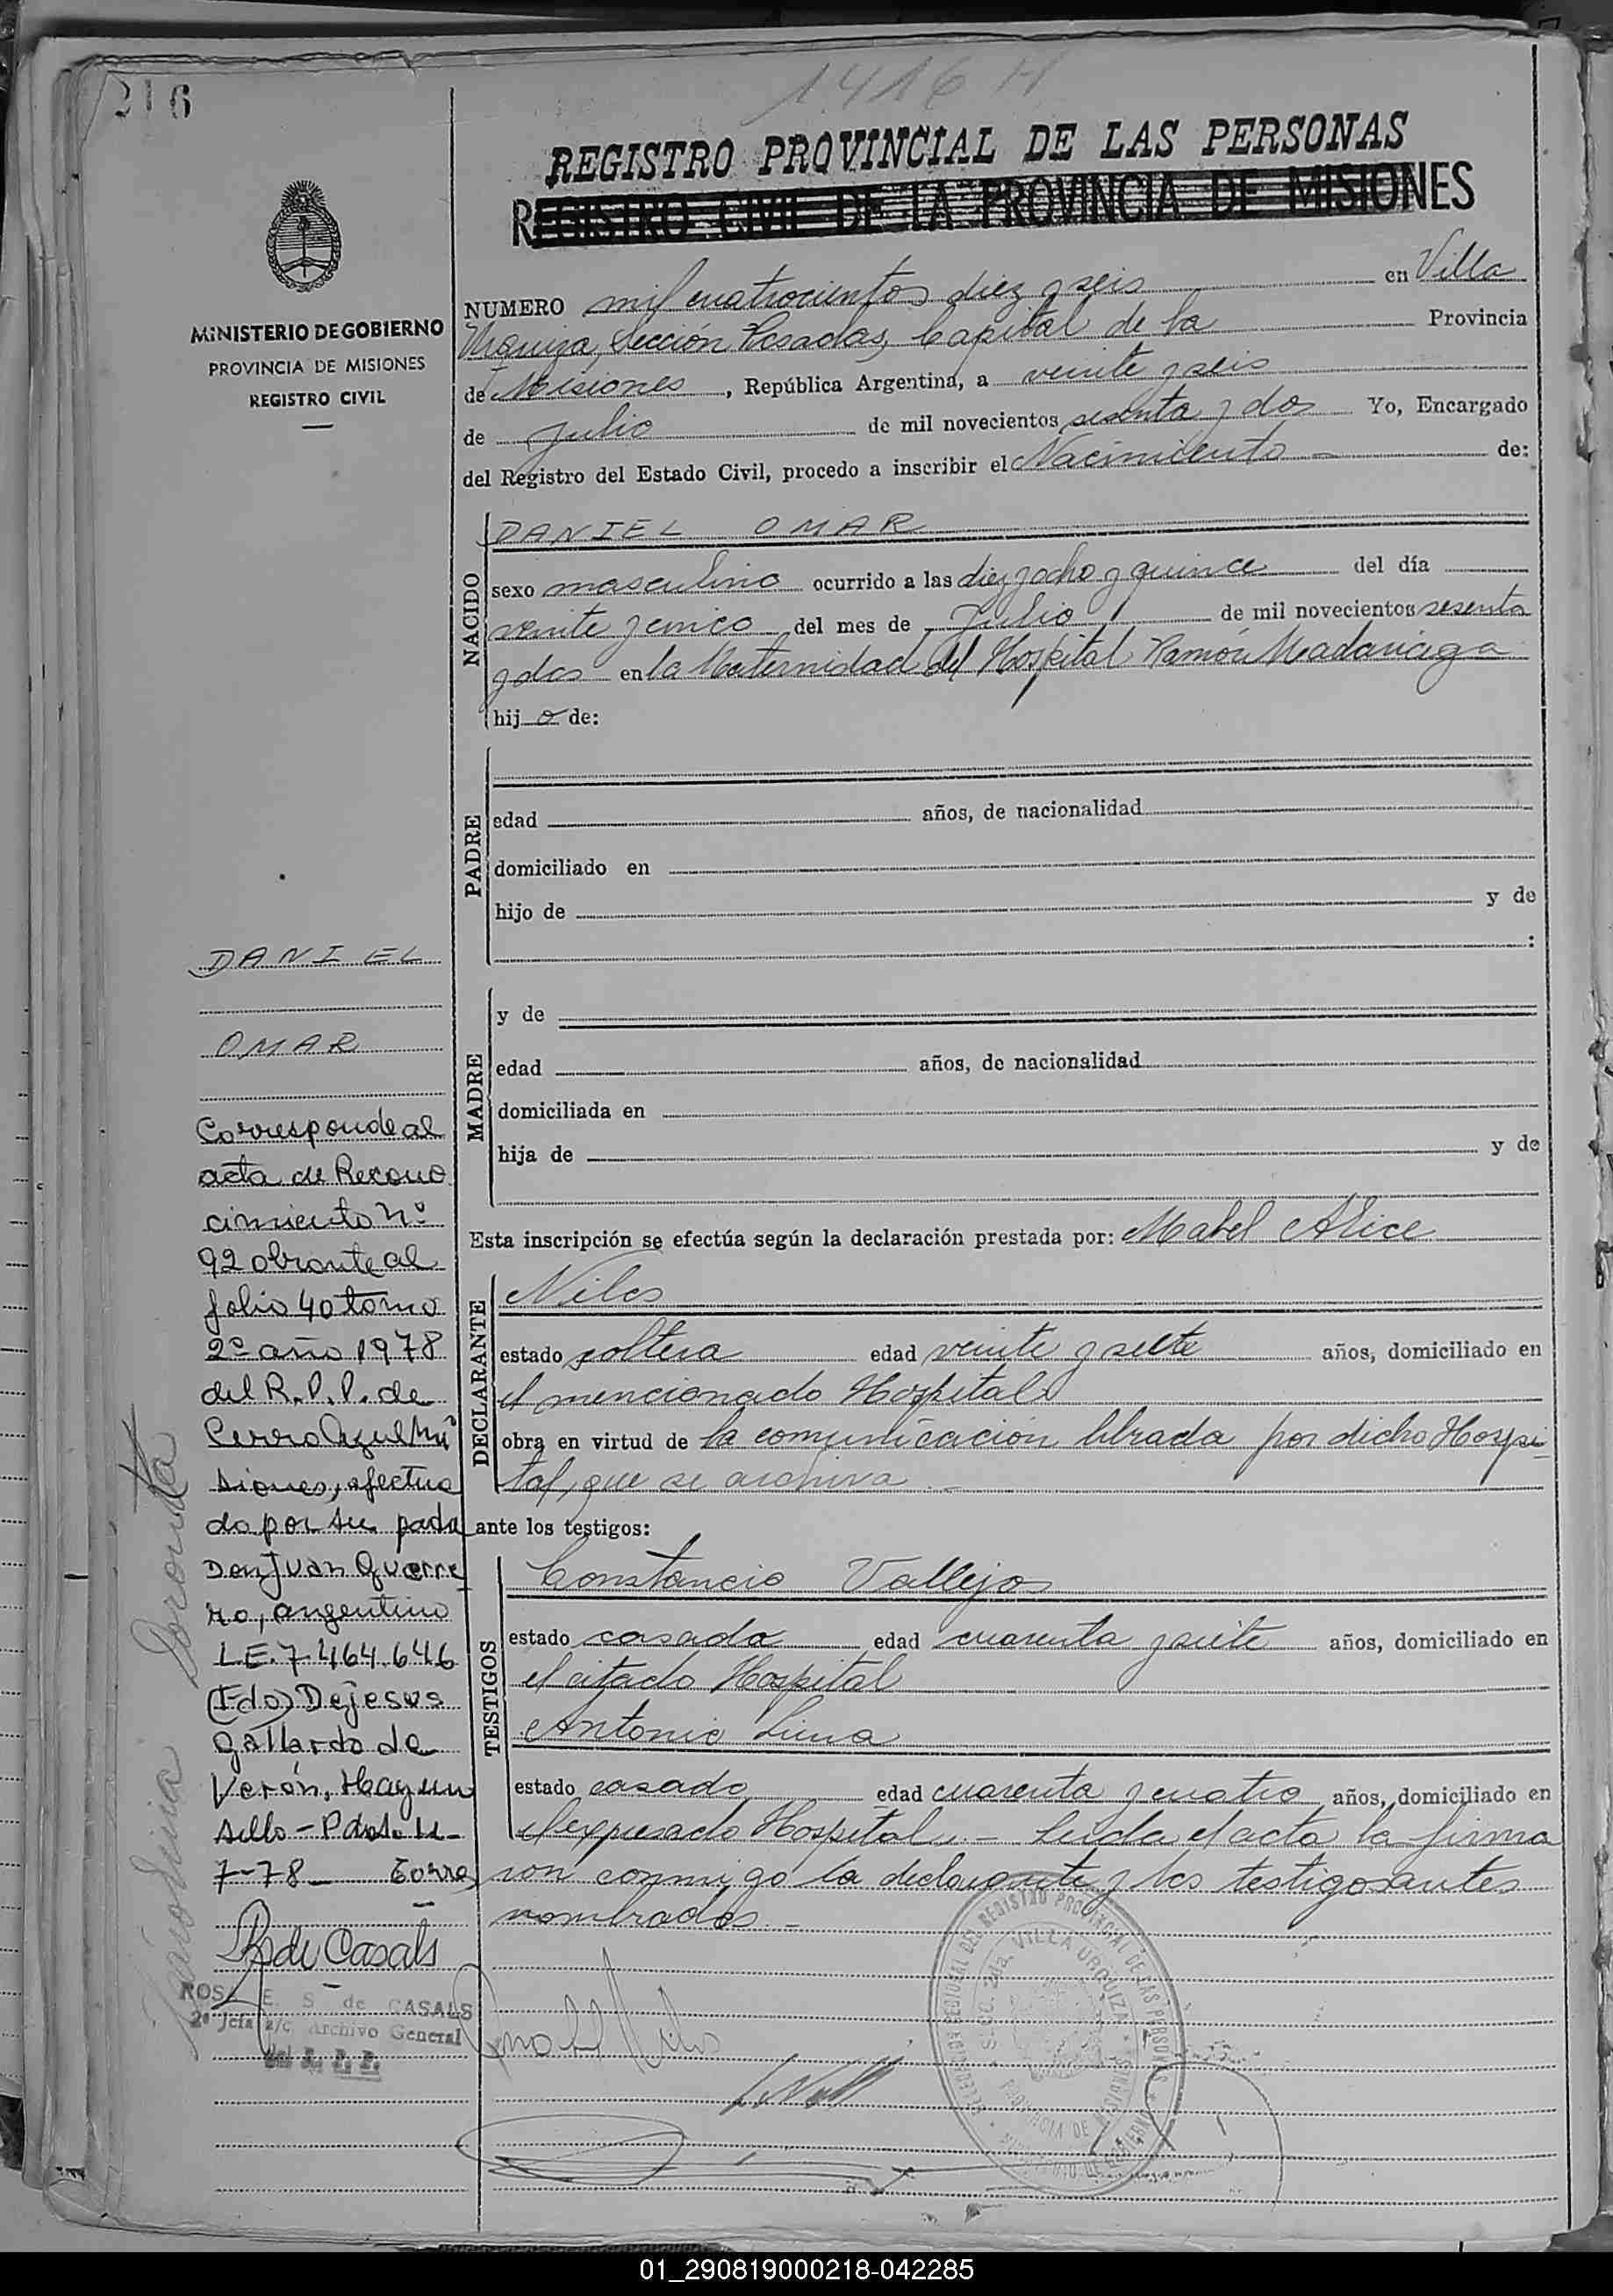 216
1416 H
REGISTRO PROVINCIAL DE LAS PERSONAS
REGISTRO CIVIL DE LA PROVINCIA DE MISIONES
MINISTERIO DE GOBIERNO
PROVINCIA DE MISIONES
REGISTRO CIVIL
NUMERO mil cuatrocientos diez y seis en Villa
Urquiza, Sección Posadas, Capital de la Provincia
de Misiones, República Argentina, a veinte y seis
de Julio de mil novecientos sesenta y dos Yo, Encargado
del Registro del Estado Civil, procedo a inscribir el Nacimiento de:
NACIDO
DANIEL OMAR
sexo masculino ocurrido a las diez y ocho y quince del día
veinte y cinco del mes de Julio de mil novecientos sesenta
y dos en la Maternidad del Hospital Ramón Madariaga
hijo de:
PADRE
edad años, de nacionalidad
domiciliado en
hijo de y de
:
MADRE
y de
edad años, de nacionalidad
domiciliada en
hija de y de
Esta inscripción se efectúa según la declaración prestada por: Mabel Alice
DECLARANTE
estado soltera edad veinte y siete años, domiciliado en
el mencionado Hospital
obra en virtud de la comunicación librada por dicho Hospi-
tal, que se archiva.-
ante los testigos:
TESTIGOS
Constancio Vallejos
estado casado edad cuarenta y siete años, domiciliado en
el citado Hospital
Antonio
estado casado edad cuarenta y cuatro años, domiciliado en
el expresado Hospital.- Leida el acta la firma
ron conmigo la declarante y los testigos antes
nombrados.-
DANIEL
OMAR
Corresponde al
acta de Recono
cimiento Nº
92 obrante al
folio 40 tomo
2º año 1978
del R.P.P. de
Cerro Azul Mi
siones, efectua
do por su padre
Don Juan Guerre
ro, argentino
L.E. 7.464.646
(Fdo) Dejesus
Gallardo de
Verón. Hay un
sello - Pdas. 11-
7-78-
R de Casals
ROSA E. S. de CASALS
2ª Jefa a/c Archivo General
del R. P. P.
DELEGACION REGIONAL DEL REGISTRO PROVINCIAL DE LAS PERSONAS
SECC. 2da. VILLA URQUIZA
PROVINCIA DE MISIONES
MINISTERIO DE GOBIERNO
01_290819000218-042285